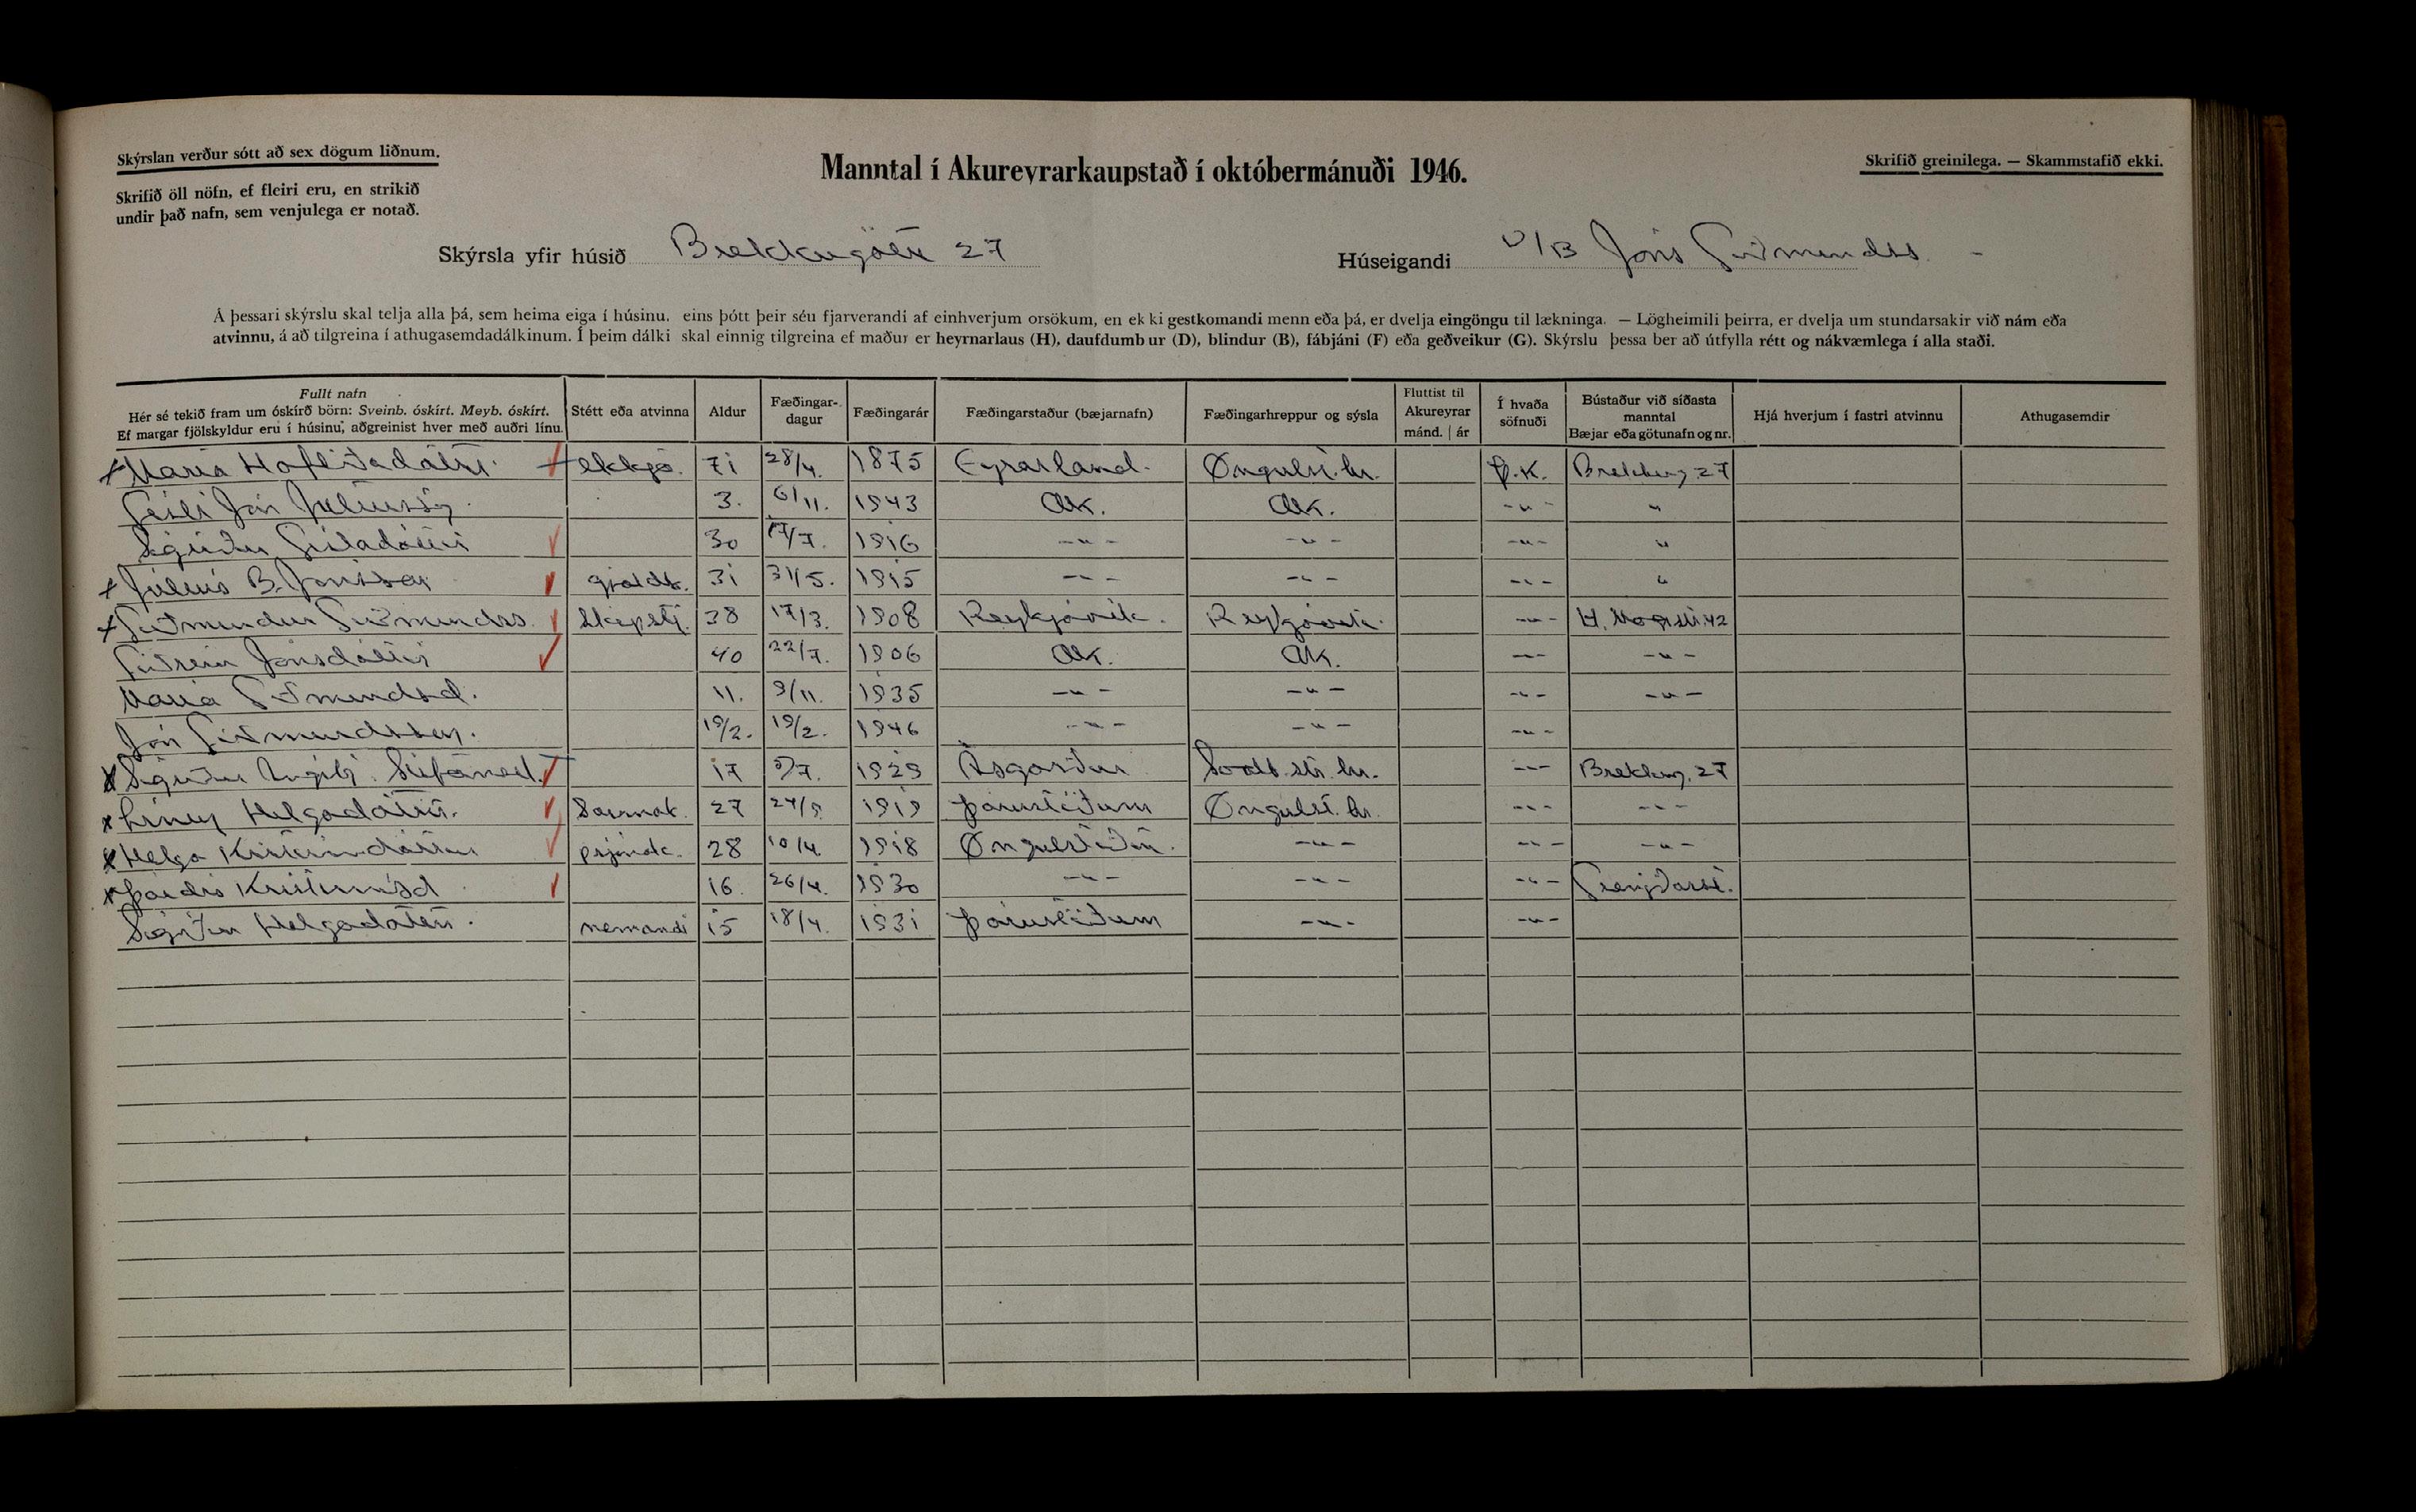 Skýrslan verður sótt að sex dögum liðnum.
Skrifið öll nöfn, ef fleiri eru, en strikið
undir það nafn, sem venjulega er notað.
Manntal í Akureyrarkaupstað í októbermánuði 1946.
Skrifið greinilega. — Skammstafið ekki.
Skýrsla yfir húsið Brekkugötu 27 Húseigandi D/B Jóns Guðmundss.
Á þessari skýrslu skal telja alla þá, sem heima eiga í húsinu, eins þótt þeir séu fjarverandi af einhverjum orsökum, en ekki gestkomandi menn eða þá, er dvelja eingöngu til lækninga. — Lögheimili þeirra, er dvelja um stundarsakir við nám eða
atvinnu, á að tilgreina í athugasemdadálkinum. Í þeim dálki skal einnig tilgreina ef maður er heyrnarlaus (H), daufdumbur (D), blindur (B), fábjáni (F) eða geðveikur (G). Skýrslu þessa ber að útfylla rétt og nákvæmlega í alla staði.
Fullt nafn
Hér sé tekið fram um óskírð börn: Sveinb. óskírt. Meyb. óskírt.
Ef margar fjölskyldur eru í húsinu, aðgreinist hver með auðri línu.
Stétt eða atvinna
Aldur
Fæðingar-
dagur
Fæðingarár
Fæðingarstaður (bæjarnafn)
Fæðingarhreppur og sýsla
Fluttist til
Akureyrar
mánd. | ár
Í hvaða
söfnuði
Bústaður við síðasta
manntal
Bæjar eða götunafn og nr.
Hjá hverjum í fastri atvinnu
Athugasemdir
María Hafliðadóttir. ekkja. 71 28/4. 1875 Eyrarland. Öngulst.hr. Þ.K. Brekkug. 27
Gísli Jón Júlíusson 3. 6/11. 1943 Ak. Ak. -"- "
Sigríður Gísladóttir 30 17/7. 1916 -"- -"- -"- "
Júlíus B. Jónsson 31 31/5. 1915 -"- -"- -"- "
Guðmundur Guðmundss. Skipstj. 38 17/3. 1908 Reykjavík. Reykjavík. -"- H. 42
Guðrún Jónsdóttir 40 22/7. 1906 Ak. Ak. -"- -"-
María Guðmundsd. 11. 9/11. 1935 -"- -"- -"- -"-
Jón Guðmundsson. 19/2. 19/2. 1946 -"- -"- -"-
Sigríður Ingibj. Stefánsd. 17 1929 Ásgarður Svalb.str.hr. -"- Brekkug. 27
Líney Helgadóttir. Saumak. 27 24/9 1919 Þórustöðum Öngulst.hr. -"- -"-
Helga Kristinsdóttir þjónak. 28 10/4 1918 Öngulstöðum. -"- -"- -"-
Þórdís Kristinsd 16. 26/4. 1930 -"- -"- -"-
Sigríður Helgadóttir. nemandi 15 18/4. 1931 Þórustöðum -"- -"-